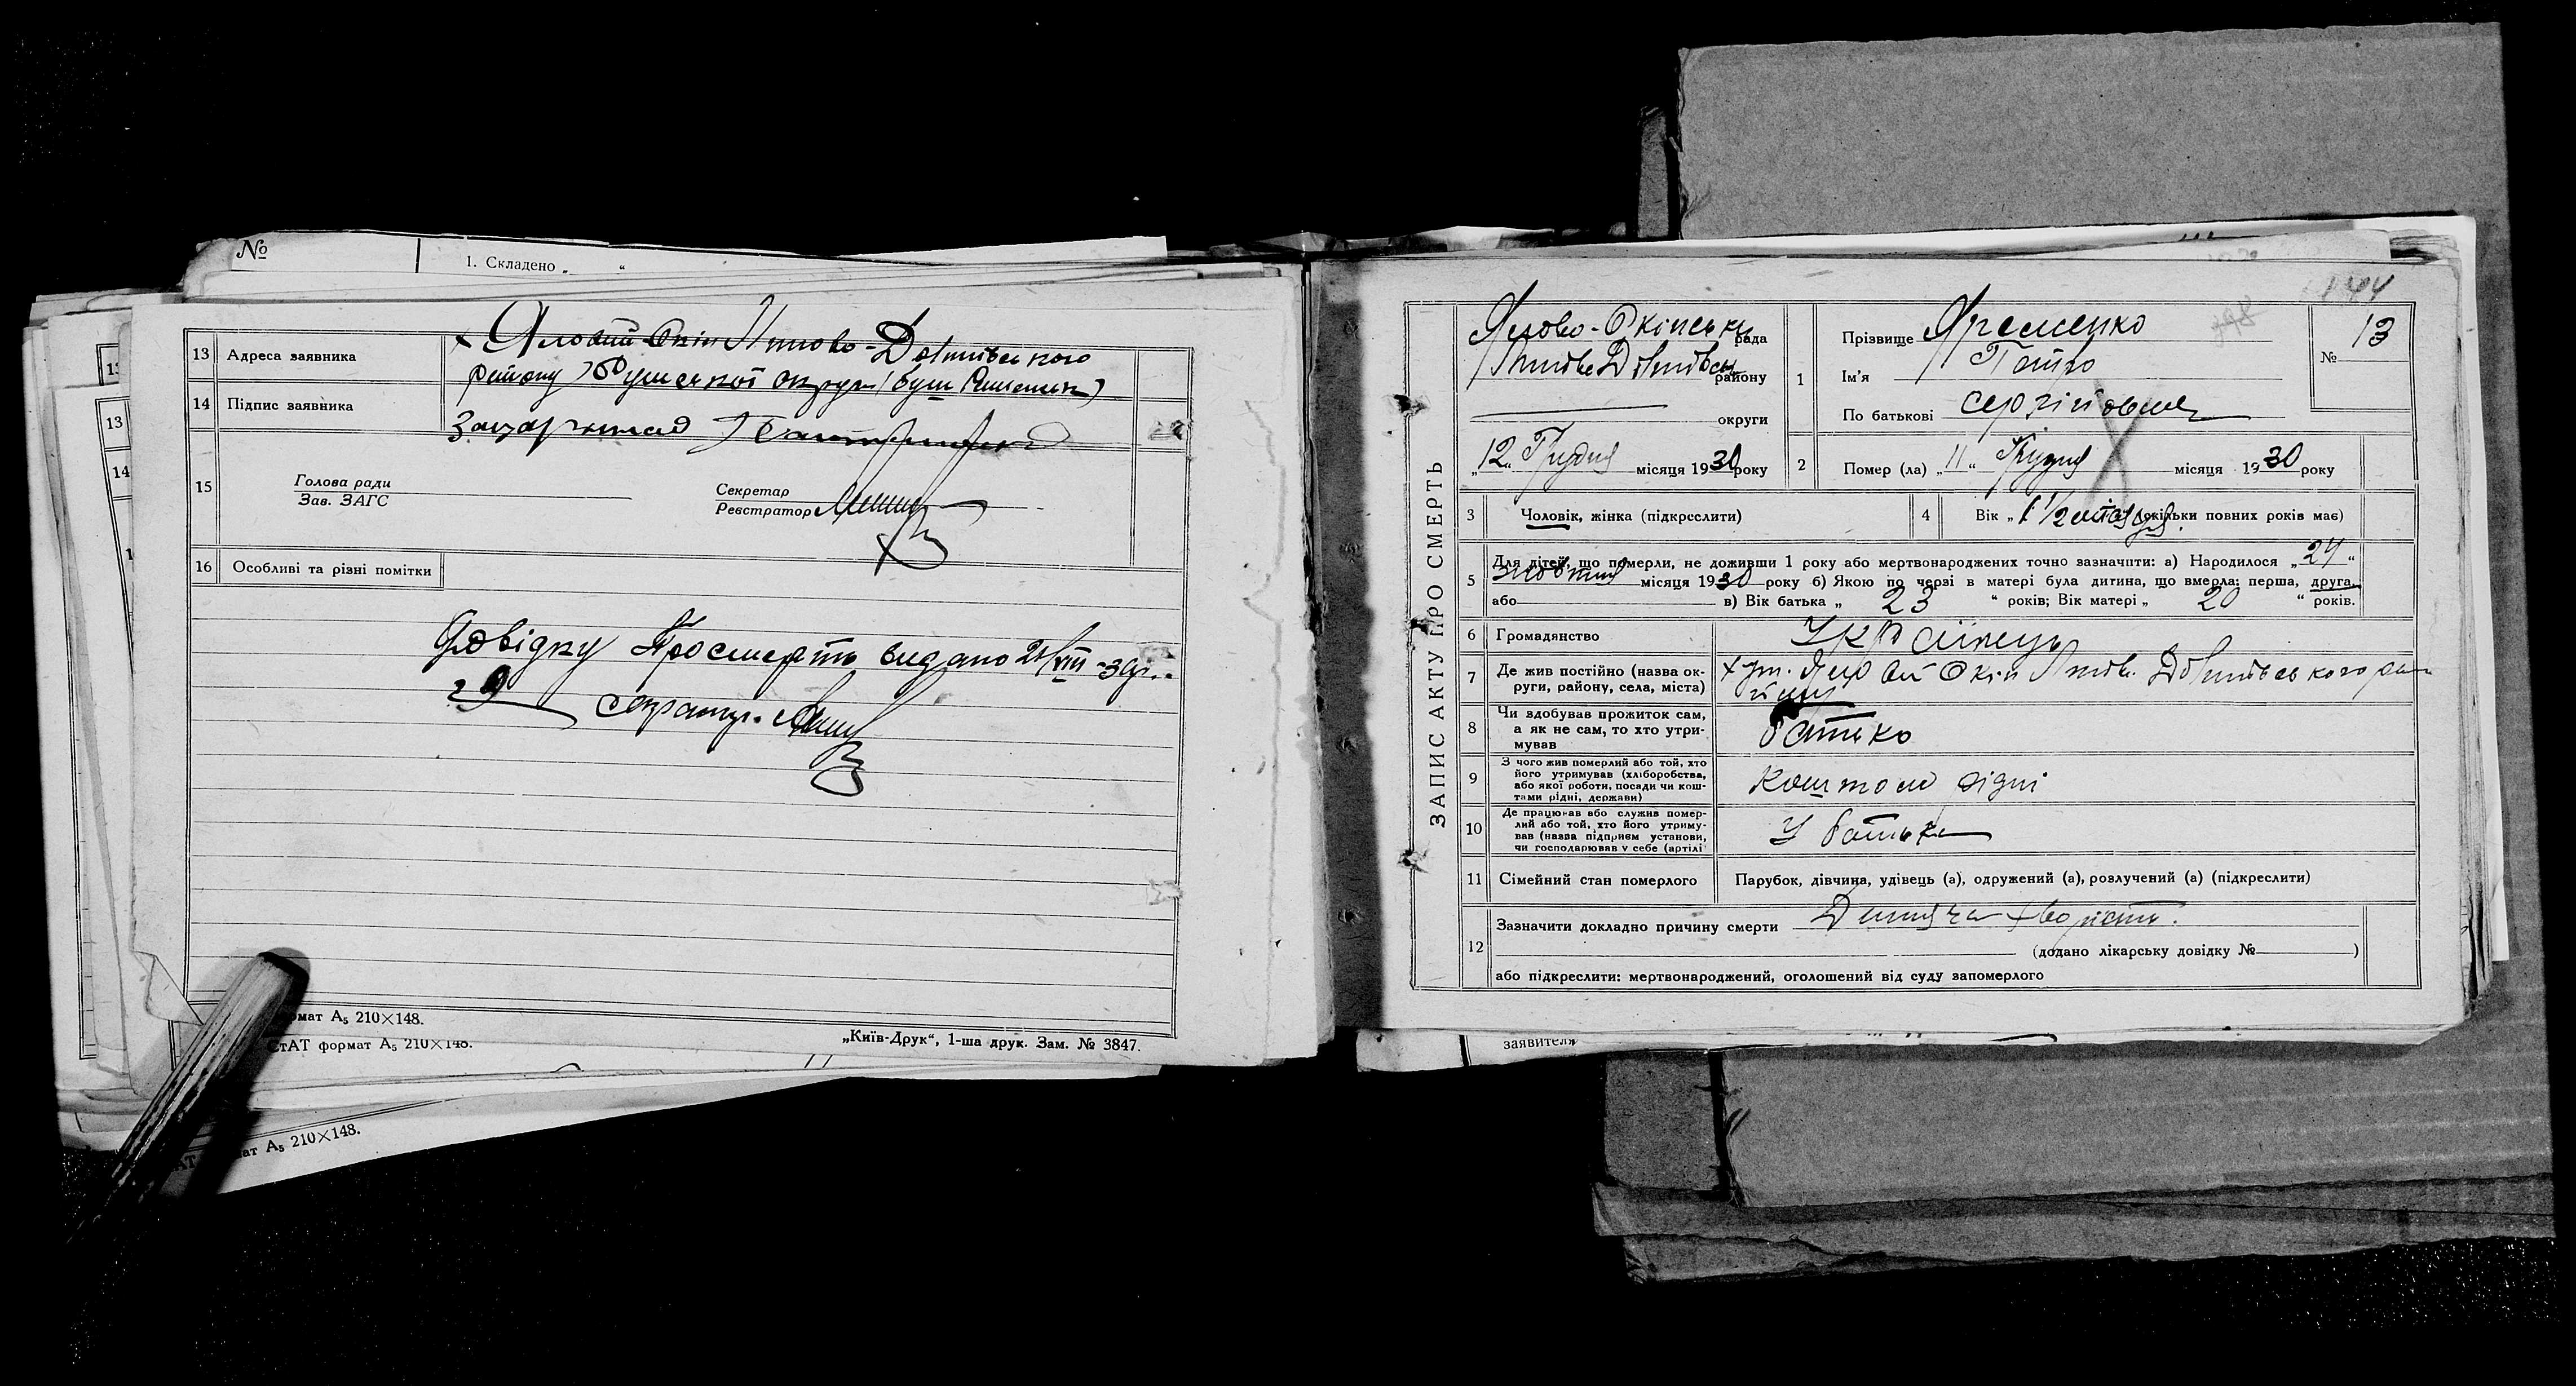 №
1. Складено „ “
13 Адреса заявника
х. Яловий Окіп Липово-Долинського
району Сумської округи
14 Підпис заявника
15 Голова ради
Зав. ЗАГС
Секретар
Реєстратор
16 Особливі та різні помітки
Довідку Про смерть видано
29 секретар.
рмат А5 210×148.
СтАТ формат А5 210×148.
„Київ-Друк“, 1-ша друк. Зам. № 3847.
ат А5 210×148.
144
ЗАПИС АКТУ ПРО СМЕРТЬ
Ялово-Окіпська рада
району
округи
„12“ Грудня місяця 1930 року
1 Прізвище Яременко
Ім’я Петро
По батькові Сергійович
№ 13
2 Помер (ла) „11“ Грудня місяця 1930 року
3 Чоловік, жінка (підкреслити)
4 Вік „1 1/2 місяця (скільки повних років має)
5 Для дітей, що померли, не доживши 1 року або мертвонароджених точно зазначити: а) Народилося „24“
жовтня місяця 1930 року б) Якою по черзі в матері була дитина, що вмерла: перша, друга,
або в) Вік батька „ 23 “ років; Вік матері „ 20 “ років.
6 Громадянство Українець
7 Де жив постійно (назва округи, району, села, міста)
хут. Яловий Окіп Лип. Долинського рай
8 Чи вдобував прожиток сам,
а як не сам, то хто утри-
мував
батько
9 З чого жив померлий або той, хто
його утримував (хліборобства,
або якої роботи, посади чи кош-
тами рідні, держави)
Коштом рідні
10 Де працював або служив помер-
лий або той, хто його утриму-
вав (назва підприєм установи,
чи господарював у себе (артілі
У батька
11 Сімейний стан померлого
Парубок, дівчина, удівець (а), одружений (а), розлучений (а) (підкреслити)
12 Зазначити докладно причину смерти Дитяча хворість.
(додано лікарську довідку № )
або підкреслити: мертвонароджений, оголошений від суду запомерлого
заявителя